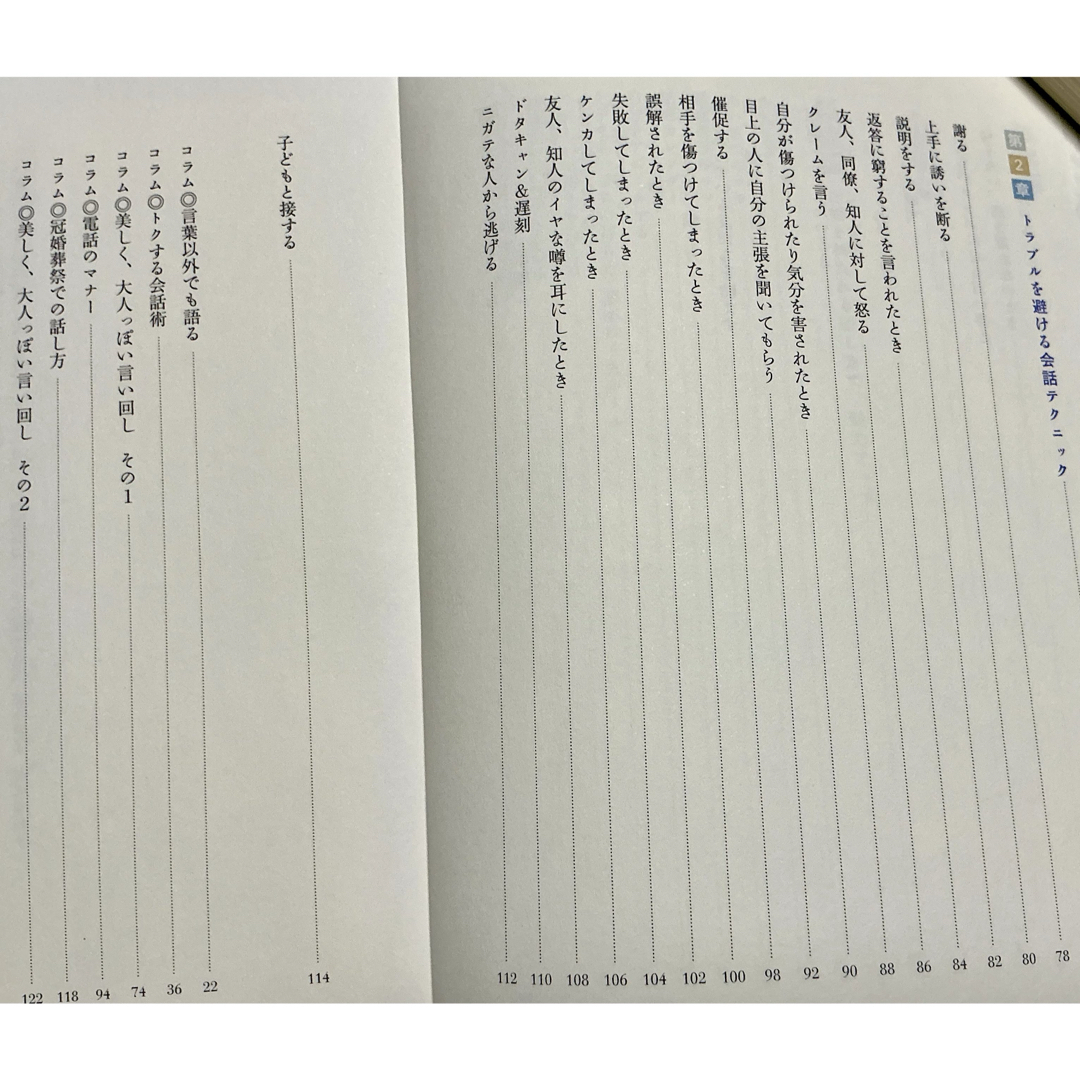 第2章 トラブルを避ける会話テクニック
謝る 78
上手に誘いを断る 80
説明をする 82
返答に窮することを言われたとき 84
友人、同僚、知人に対して怒る 86
クレームを言う 88
自分が傷つけられたり気分を害されたとき 90
目上の人に自分の主張を聞いてもらう 92
催促する 98
相手を傷つけてしまったとき 100
誤解されたとき 102
失敗してしまったとき 104
ケンカしてしまったとき 106
友人、知人のイヤな噂を耳にしたとき 108
ドタキャン&遅刻 110
ニガテな人から逃げる 112
子どもと接する 114
コラム◎言葉以外でも語る 22
コラム◎トクする会話術 36
コラム◎美しく、大人っぽい言い回し その1 74
コラム◎電話のマナー 94
コラム◎冠婚葬祭での話し方 118
コラム◎美しく、大人っぽい言い回し その2 122